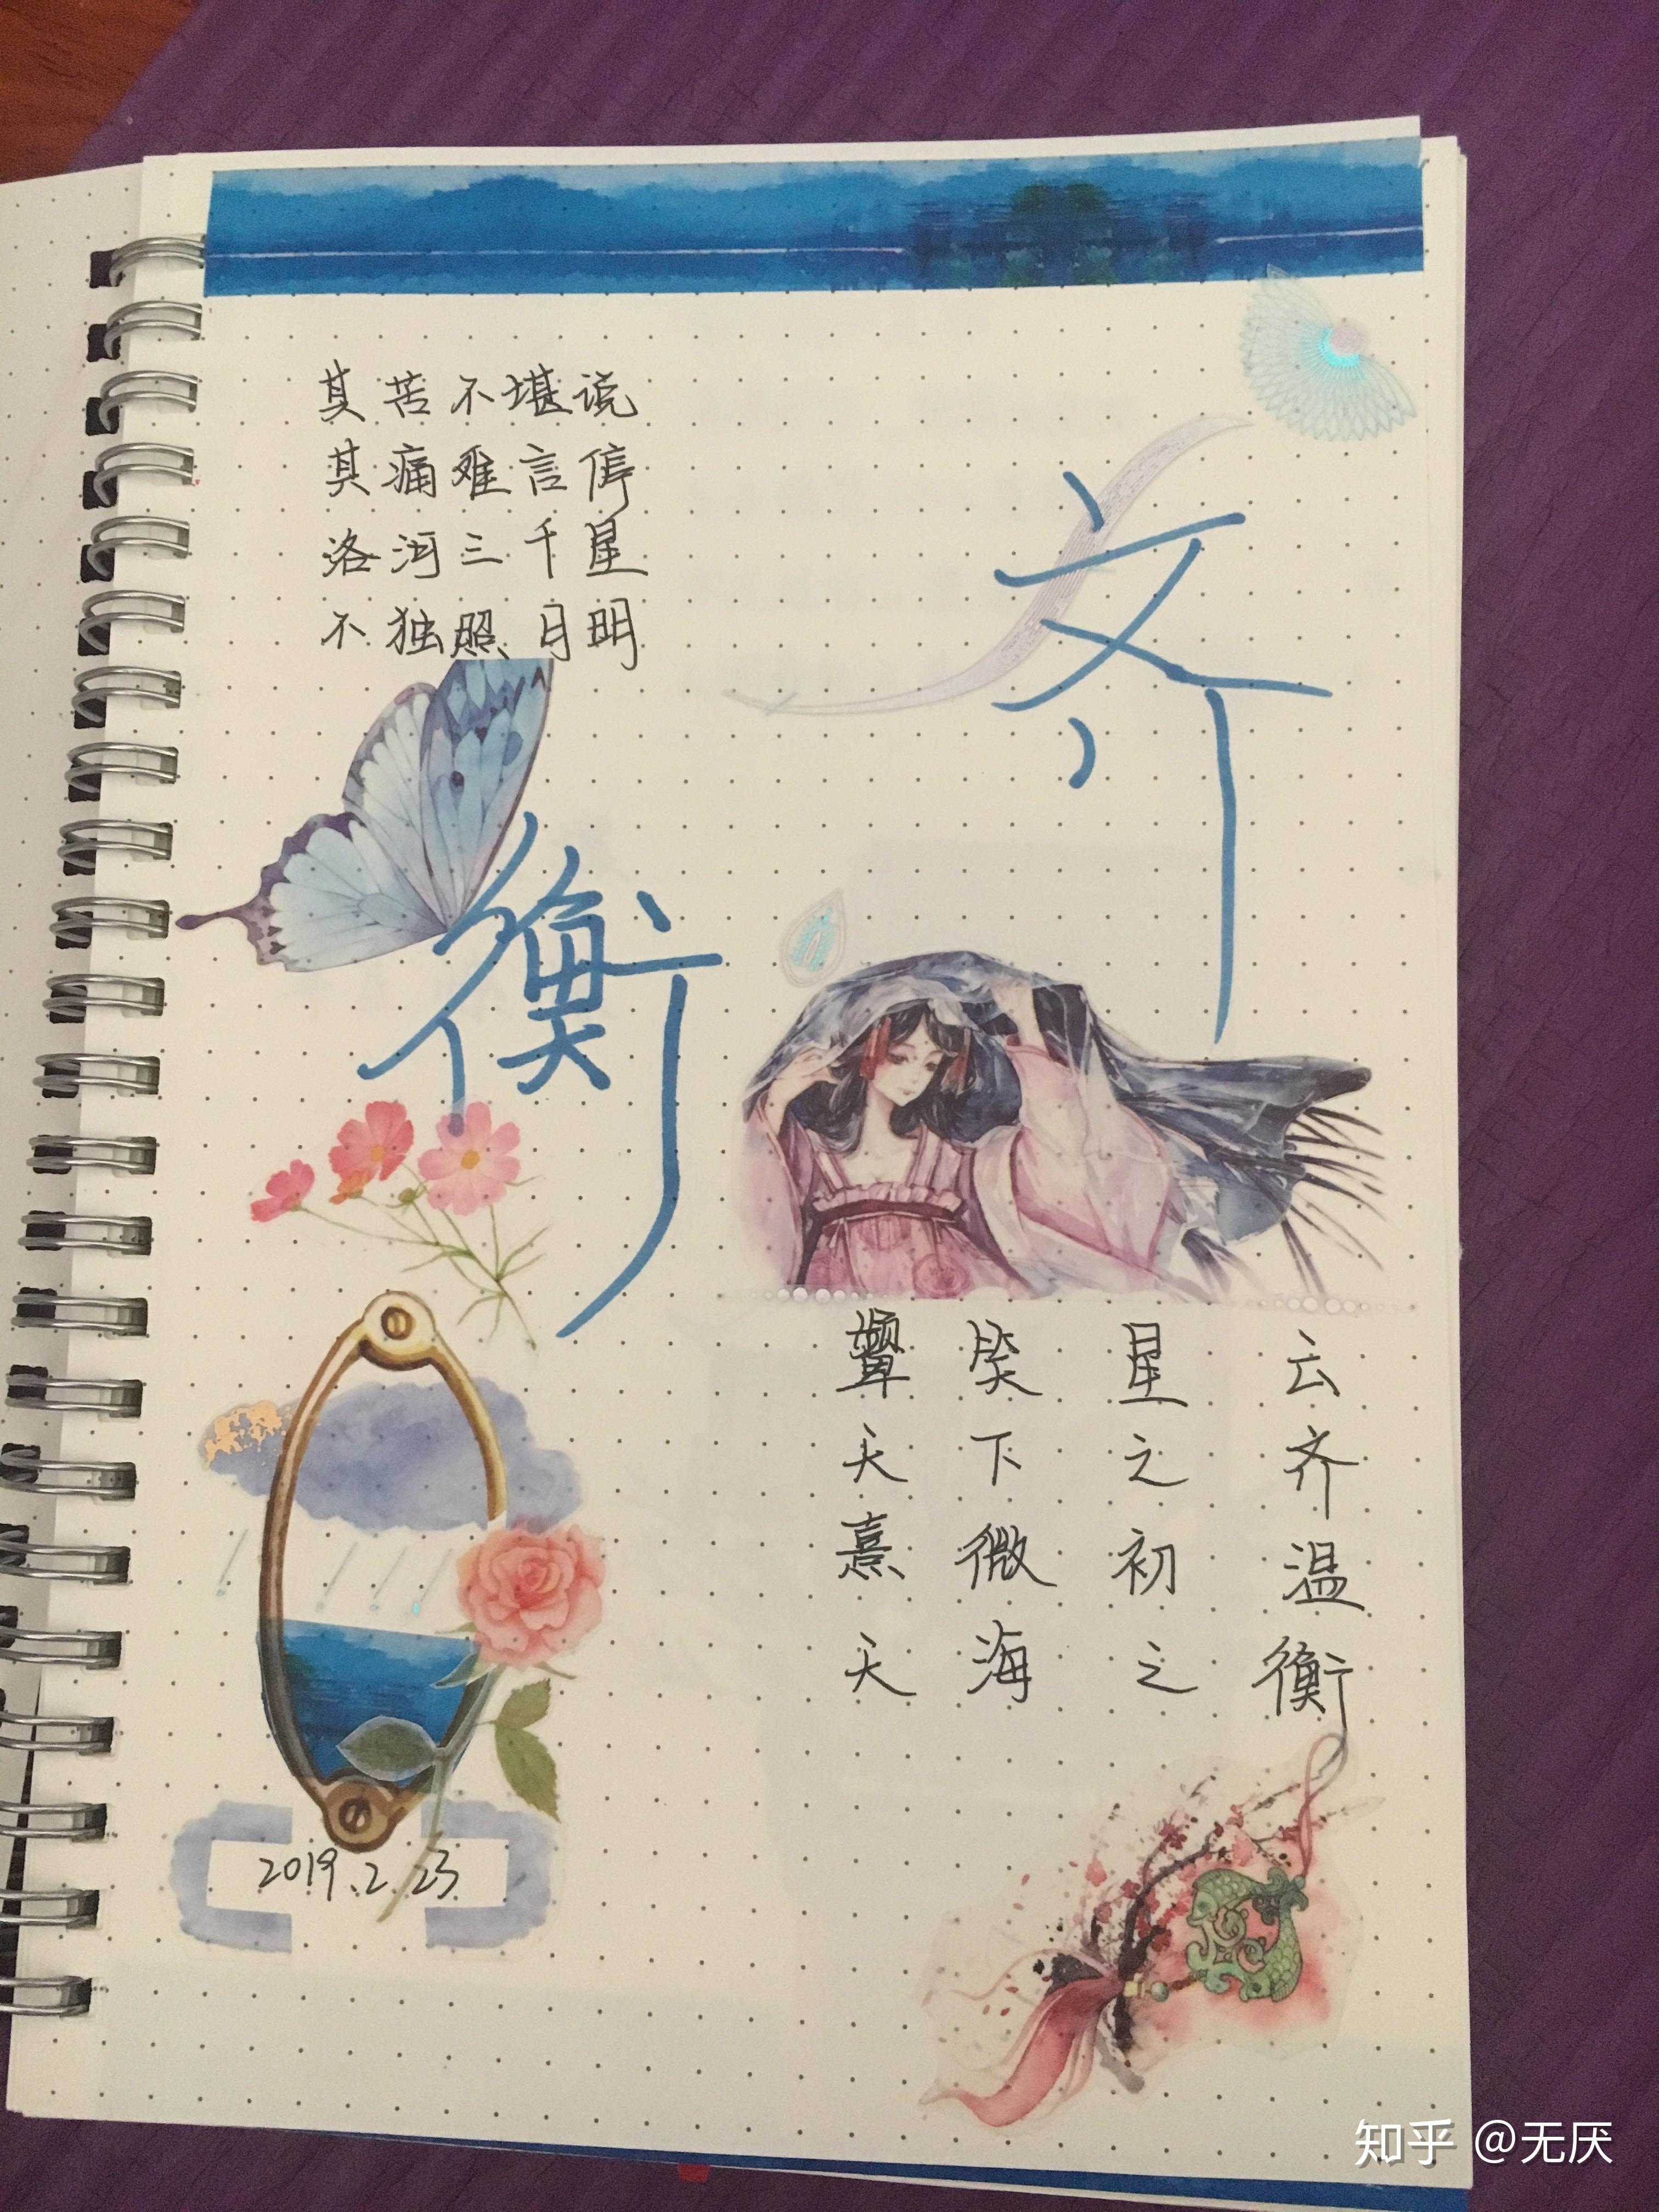 其苦不堪说
其痛难言停
洛河三千星
不独照月明
齐
衡
云齐温衡
星之初之
笑下微海
颦天熹天
2019.2.23
知乎 @无厌